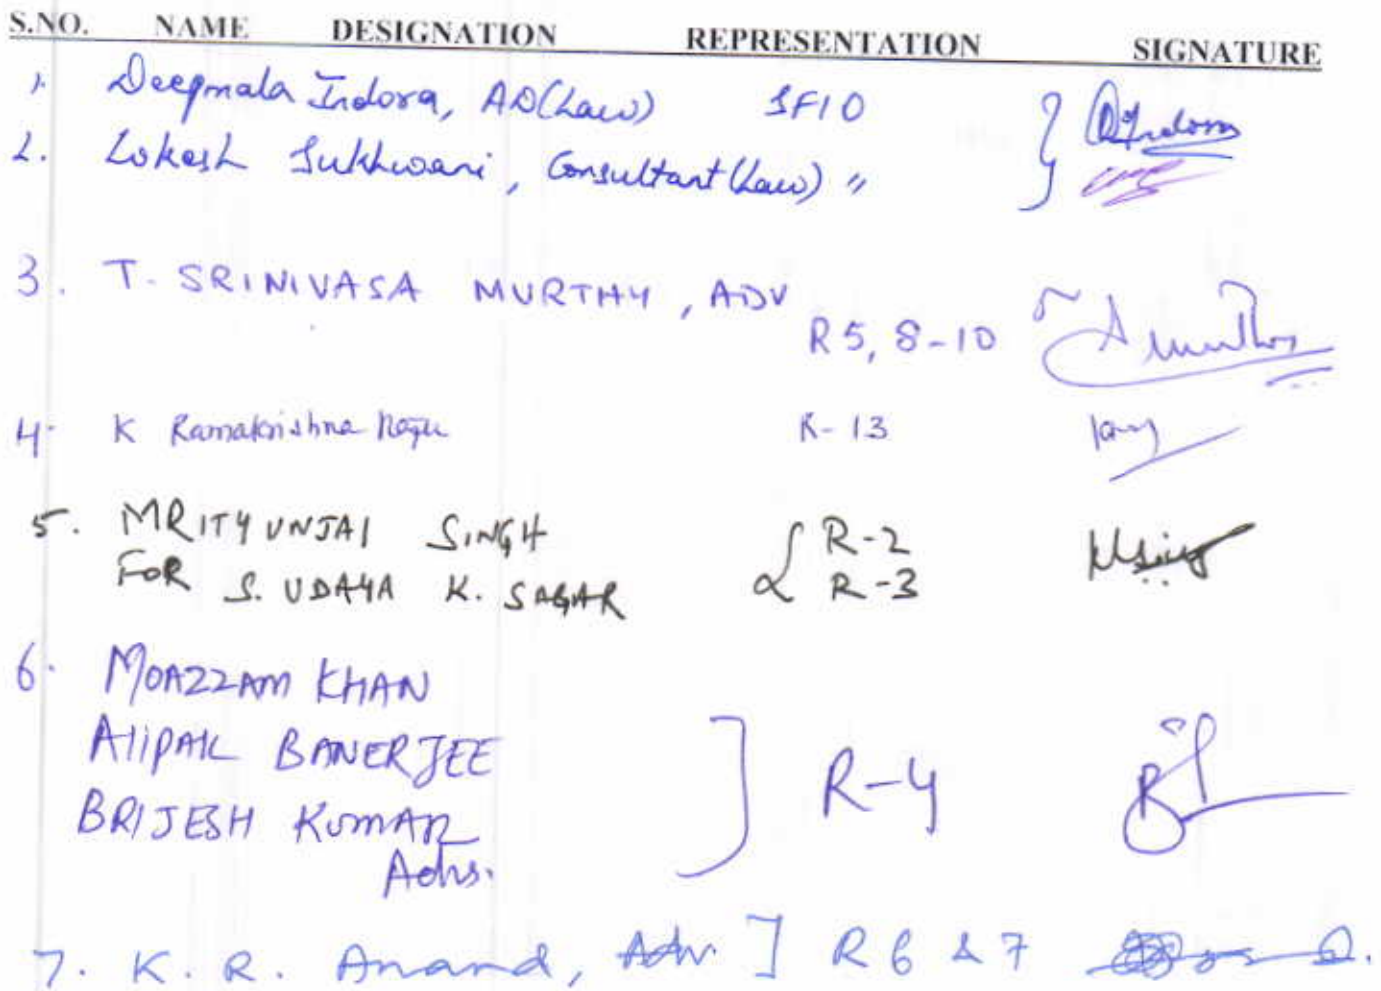 S.NO. NAME DESIGNATION REPRESENTATION SIGNATURE
1. Deepmala Indora, AD(Law) SFIO
2. Lokesh Sukhwani, Consultant (Law) "
3. T. SRINIVASA MURTHY, ADV
R 5, 8-10
4. K Ramakrishna R-13
5. MRITYUNJAI SINGH R-2
FOR S. UDAYA K. SAGAR R-3
6. MOAZZAM KHAN
ALIPAK BANERJEE
R-4
BRIJESH KUMAR
Advs.
7. K. R. Anand, Adv. ] R 6 & 7